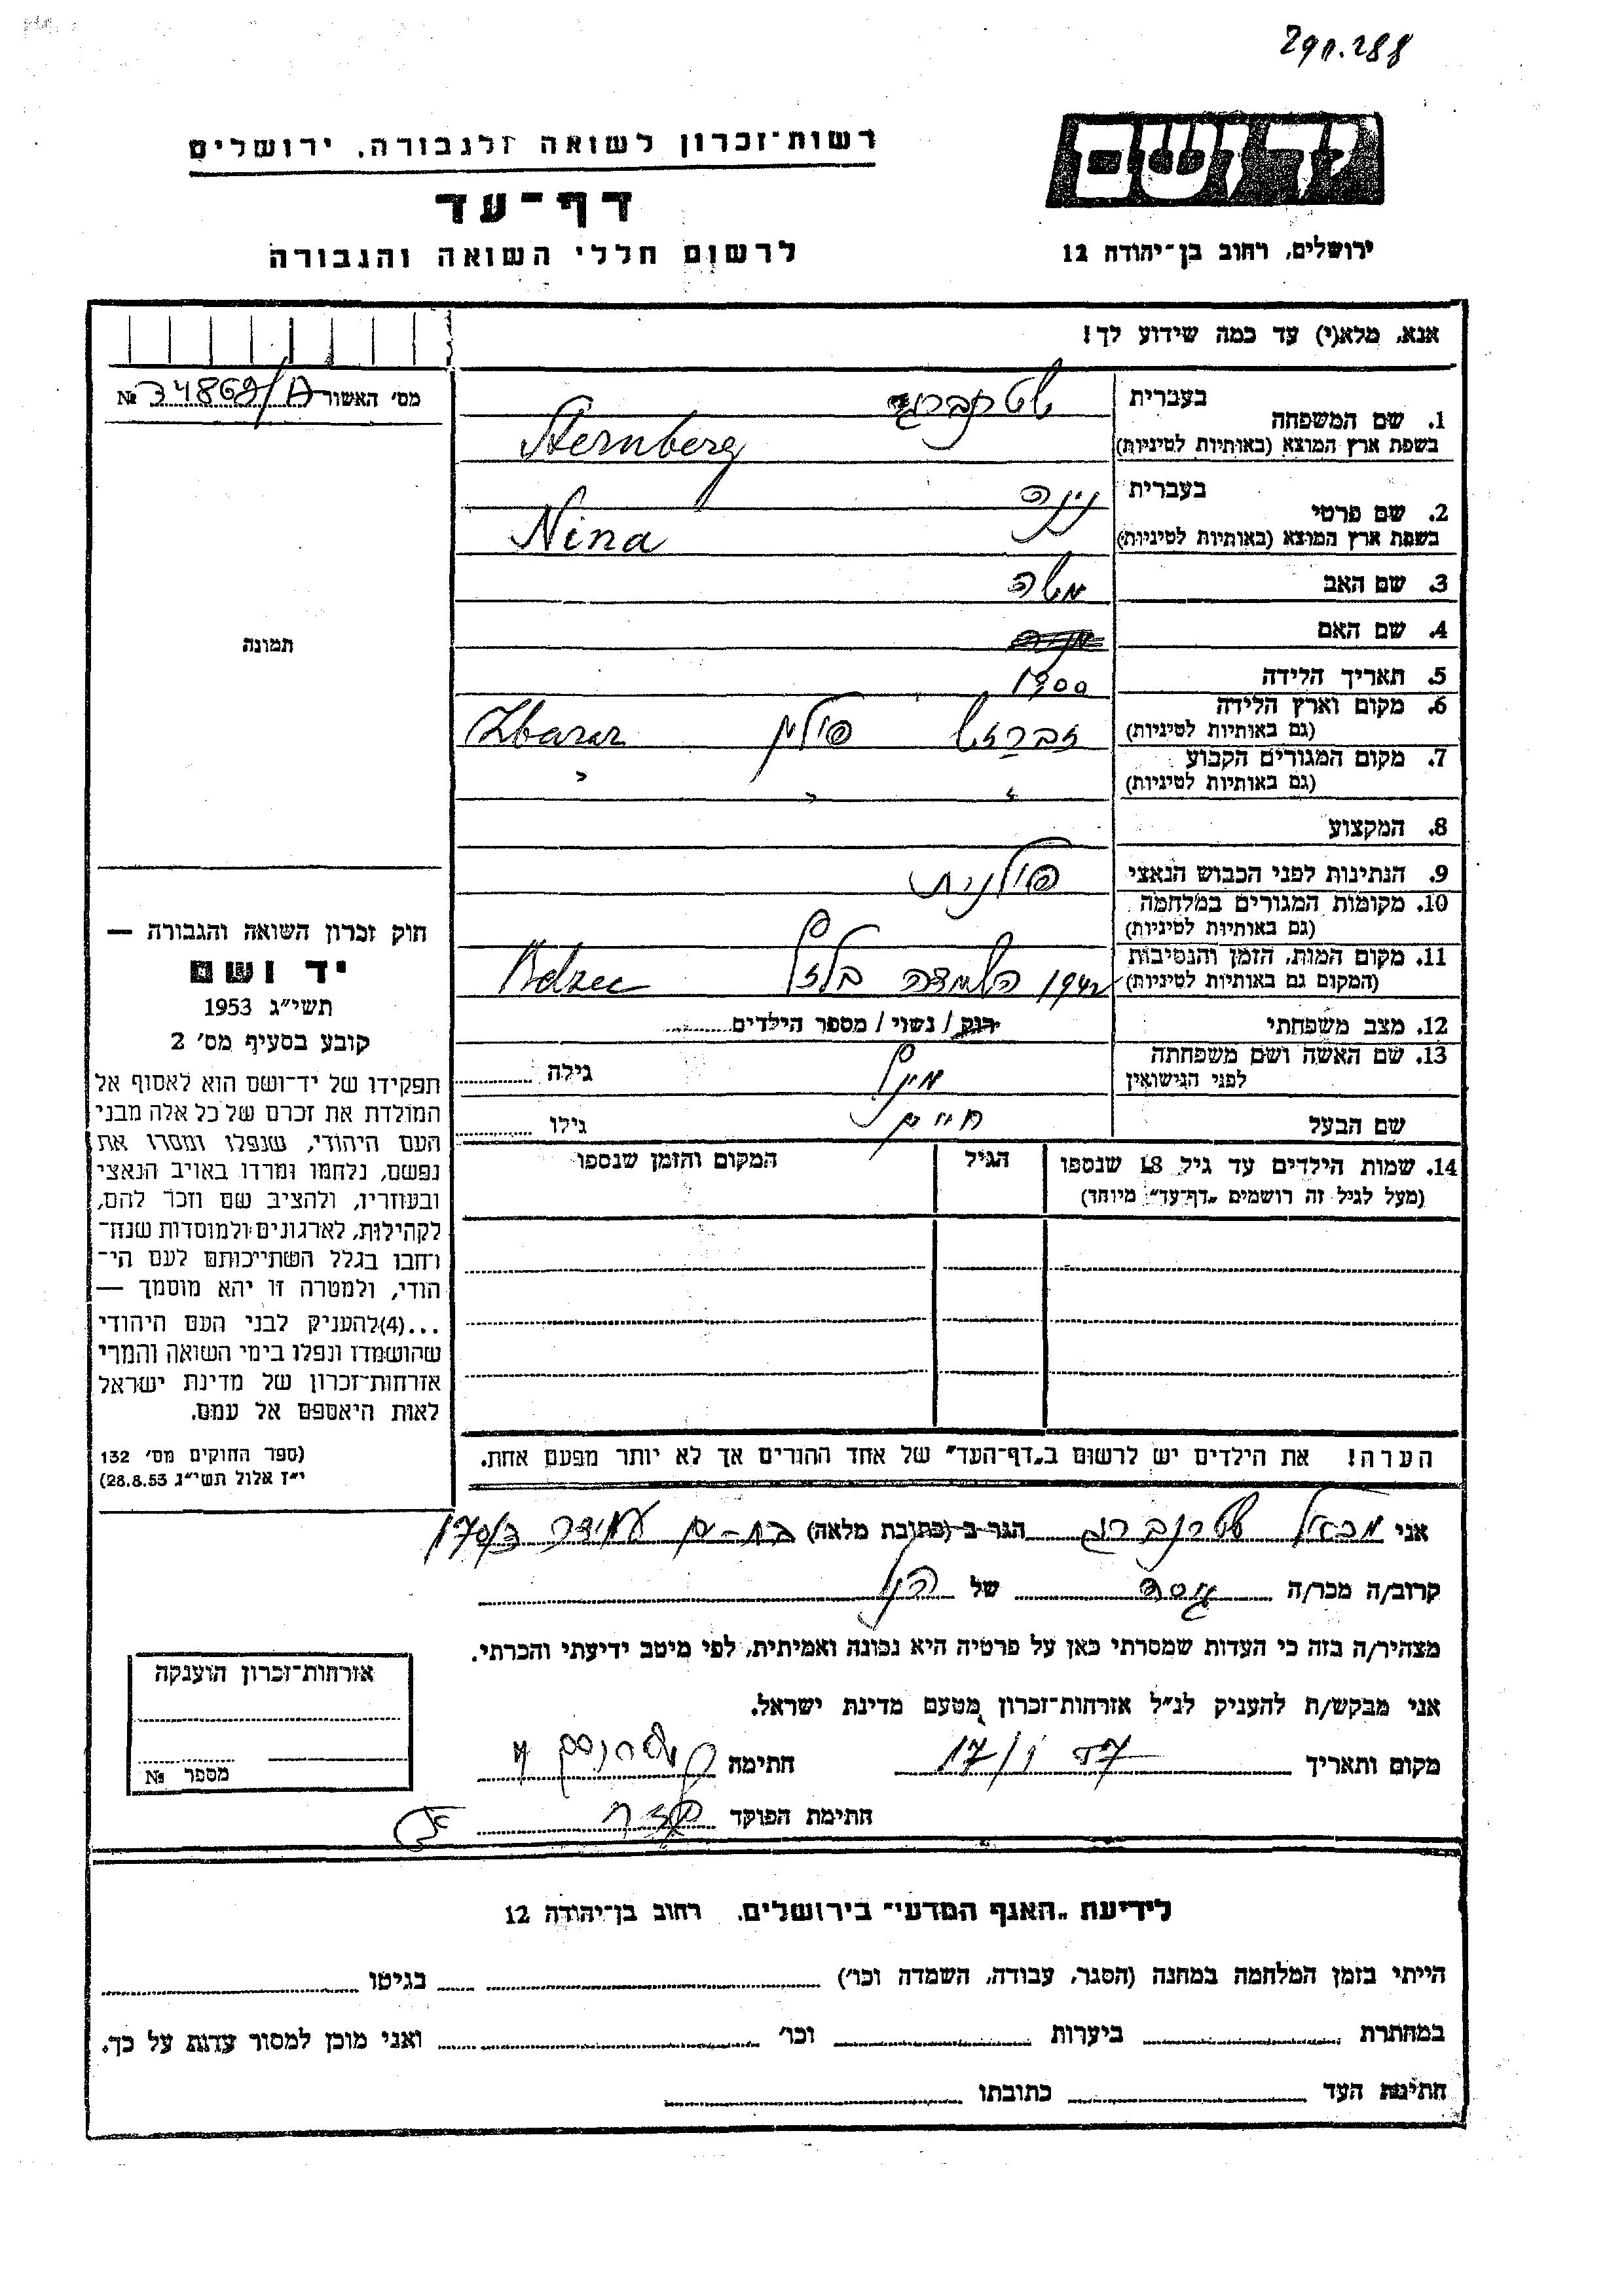 290.288
יד ושם
ירושלים, רחוב בן־יהודה 12
רשות־זכרון לשואה ולגבורה, ירושלים
דף־עד
לרשום חללי השואה והגבורה
אנא, מלא(י) עד כמה שידוע לך!
מס׳ האשור 34869/A №
1. שם המשפחה
בעברית שטרנברג
בשפת ארץ המוצא (באותיות לטיניות) Sternberg
2. שם פרטי
בעברית נינה
בשפת ארץ המוצא (באותיות לטיניות) Nina
3. שם האב משה
4. שם האם
5. תאריך הלידה 1900
6. מקום וארץ הלידה
(גם באותיות לטיניות) זברז׳ פולין Zbaraz
7. מקום המגורים הקבוע
(גם באותיות לטיניות) " " "
8. המקצוע
9. הנתינות לפני הכבוש הנאצי פולנית
10. מקומות המגורים במלחמה
(גם באותיות לטיניות)
11. מקום המות, הזמן והנסיבות
(המקום גם באותיות לטיניות) 1942 השמדה בלזץ Belzec
12. מצב משפחתי רוק / נשוי / מספר הילדים
13. שם האשה ושם משפחתה
לפני הנישואין גילה
שם הבעל חיים גילו
14. שמות הילדים עד גיל 18 שנספו הגיל המקום והזמן שנספו
(מעל לגיל זה רושמים „דף־עד״ מיוחד)
תמונה
חוק זכרון השואה והגבורה —
יד ושם
תשי״ג 1953
קובע בסעיף מס׳ 2
תפקידו של יד־ושם הוא לאסוף אל
המולדת את זכרם של כל אלה מבני
העם היהודי, שנפלו ומסרו את
נפשם, נלחמו ומרדו באויב הנאצי
ובעוזריו, ולהציב שם וזכר להם,
לקהילות, לארגונים ולמוסדות שנח־
רחבו בגלל השתייכותם לעם הי־
הודי, ולמטרה זו יהא מוסמך —
...(4)להעניק לבני העם היהודי
שהושמדו ונפלו בימי השואה והמרי
אזרחות־זכרון של מדינת ישראל
לאות היאספם אל עמם.
(ספר החוקים מס׳ 132
י״ז אלול תשי״ג 28.8.53)
הערה! את הילדים יש לרשום ב„דף־העד״ של אחד ההורים אך לא יותר מפעם אחת.
אני שטרנברג הגר ב (כתובת מלאה) בת-ים עמידר 170/3
קרוב/ה מכר/ה גיסה של הנ״ל
מצהיר/ה בזה כי העדות שמסרתי כאן על פרטיה היא נכונה ואמיתית, לפי מיטב ידיעתי והכרתי.
אני מבקש/ת להעניק לנ״ל אזרחות־זכרון מטעם מדינת ישראל.
מקום ותאריך 17/ חתימה
חתימת הפוקד
אזרחות־זכרון הוענקה
מספר №
לידיעת „האגף המדעי״ בירושלים, רחוב בן־יהודה 12
הייתי בזמן המלחמה במחנה (הסגר, עבודה, השמדה וכו׳) בגיטו
במחתרת ביערות וכו׳ ואני מוכן למסור עדות על כך.
חתימת העד כתובתו